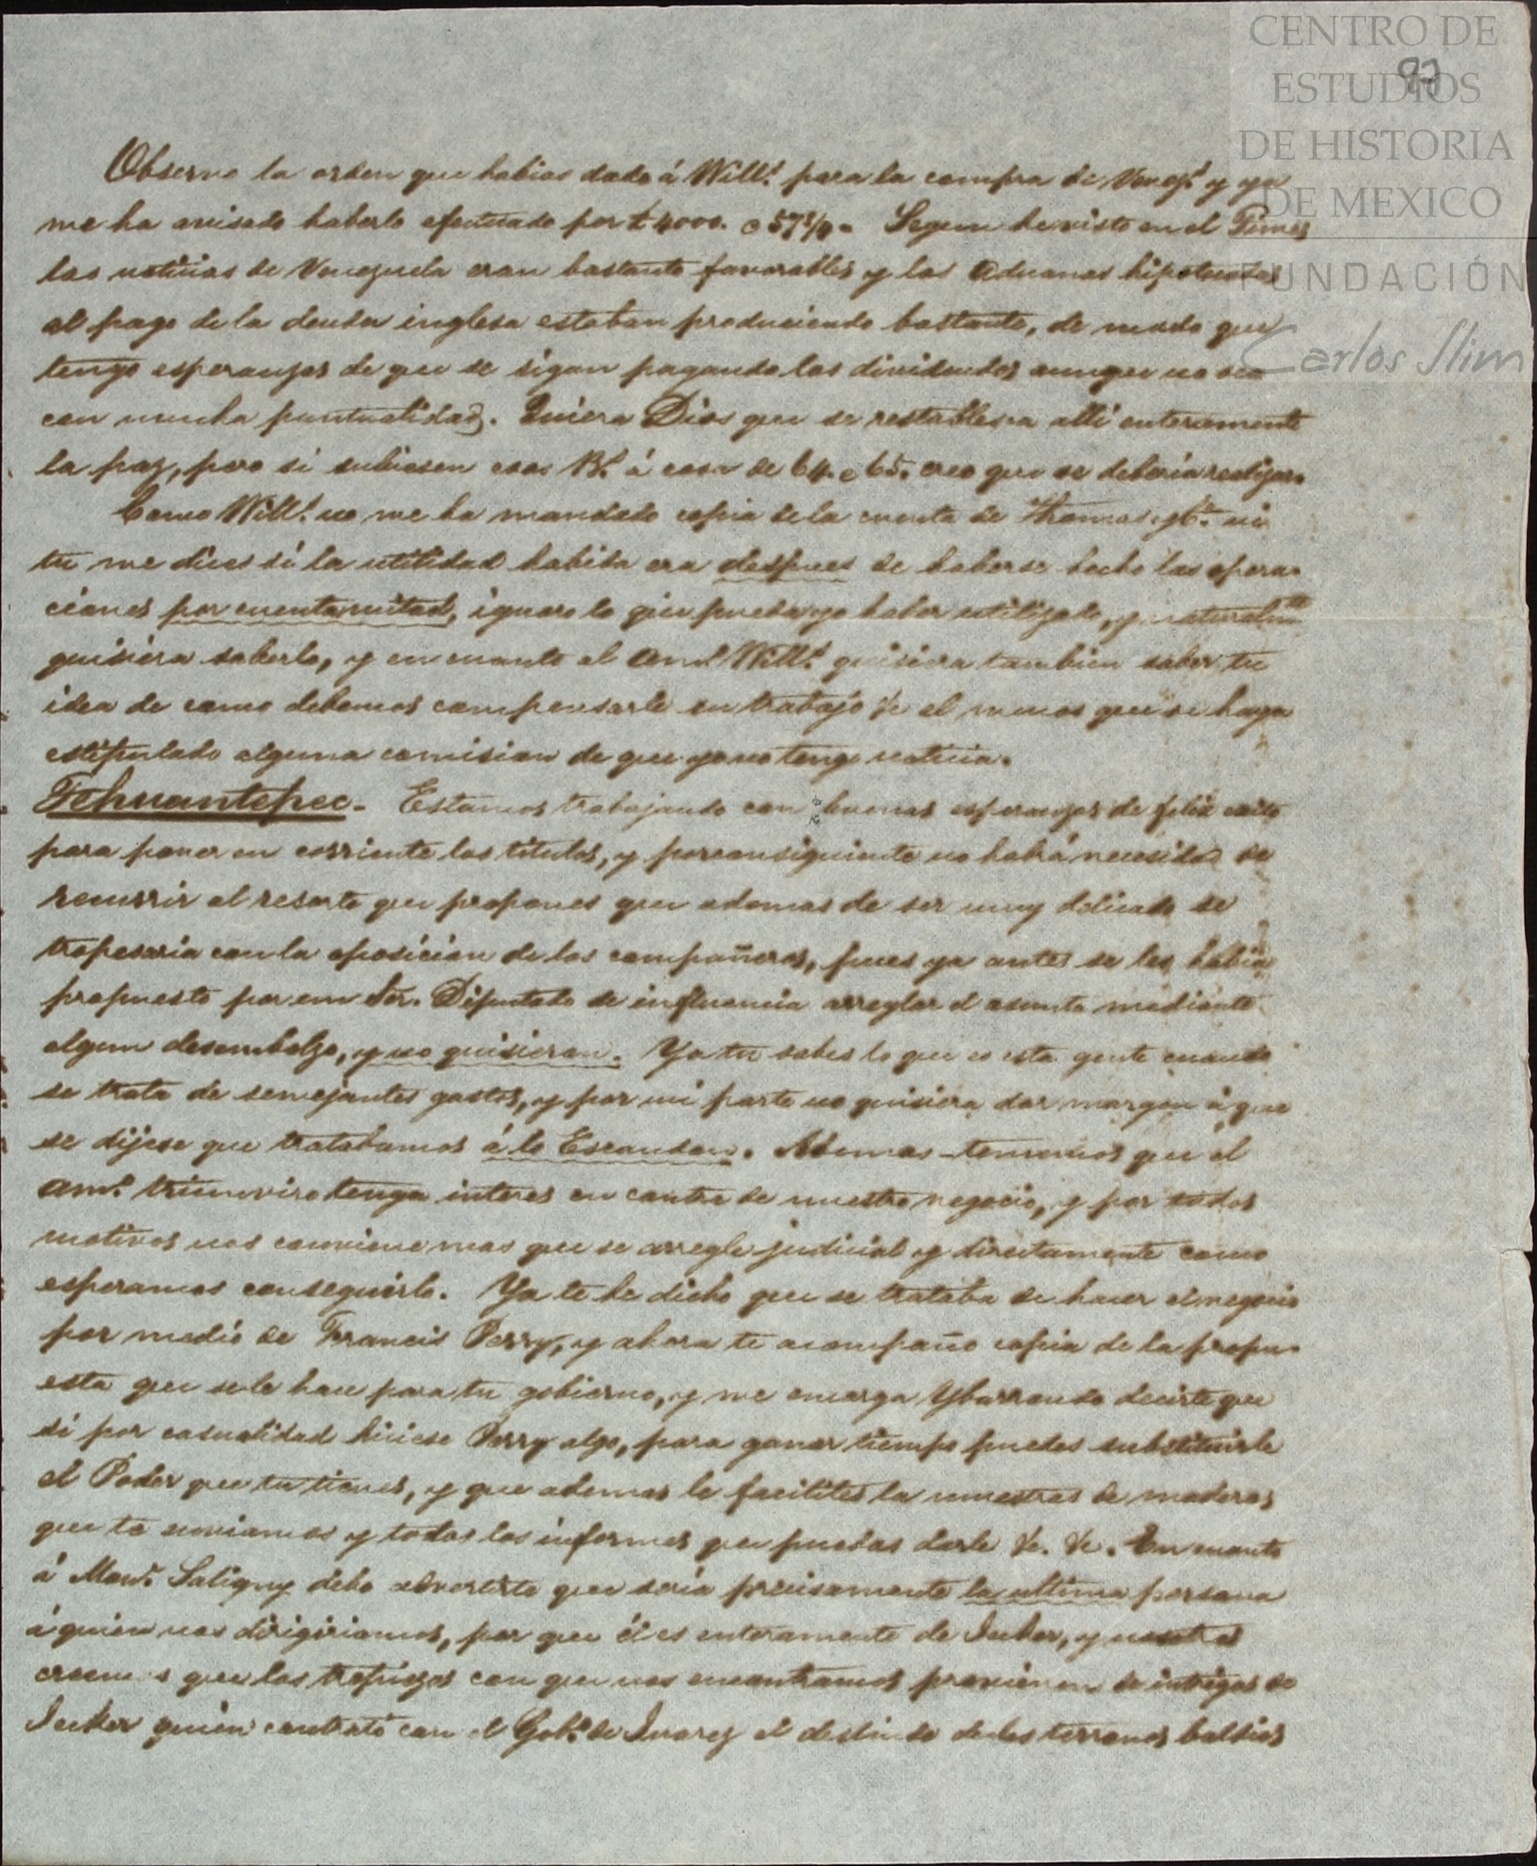 CENTRO DE
ESTUDIOS
DE HISTORIA
DE MEXICO
FUNDACIÓN
Carlos Slim
Observo la orden que habias dado á Will.s para la compra de Venez.s y ya
me ha avisado haberlo efectuado por £4000. @ 57 3/8. Segun he visto en el Times
las noticias de Venezuela eran bastante favorables y las Aduanas hipotecadas
al pago de la deuda inglesa estaban produciendo bastante, de modo que
tengo esperanzas de que se sigan pagando los dividendos aunque no sea
con mucha puntualidad. Quiera Dios que se restablesca alli enteramente
la paz, pero si subiesen esos B.s á cosa de 64. @ 65. creo que se deberia realizar.
Como Will.s no me ha mandado copia de la cuenta de Thomas y C.a ni
tu me dices si la utilidad habida era despues de haberse hecho las opera-
ciones por cuenta mitad, ignoro lo que pueda yo haber utilizado, y naturalm.te
quisiera saberlo, y en cuanto al am.o Will.s quisiera tambien saber tu
idea de como debemos compensarle su trabajo &c al menos que se haya
estipulado alguna comision de que yo no tengo noticia.
Tehuantepec. Estamos trabajando con buenas esperanzas de feliz exito
para poner en corriente los titulos, y por consiguiente no habrá necesidad de
recurrir al resorte que propones que ademas de ser muy delicado se
tropesaria con la oposicion de los compañeros, pues ya antes se les habia
propuesto por un Sor. Diputado de influencia arreglar el asunto mediante
algun desembolzo, y no quisieron. Ya tu sabes lo que es esta gente cuando
se trata de semejantes gastos, y por mi parte no quisiera dar margen á que
se dijese que tratabamos á lo Escandon. Ademas tememos que el
am.o triumviro tenga interes en contra de nuestro negocio, y por todos
motivos nos conviene mas que se arregle judicial y directamente como
esperamos conseguirlo. Ya te he dicho que se trataba de hacer el negocio
por medio de Francis Perry, y ahora te acompaño copia de la propu-
esta que se le hace para tu gobierno, y me encarga Ybarrondo decirte que
si por casualidad hiciese Perry algo, para ganar tiempo puedes substituirle
el Poder que tu tienes, y que ademas le facilites la muestras de maderas
que te enviamos y todos los informes que puedas darle &c. &c. En cuanto
á Mons.r Saligny debo advertirte que seria precisamente la ultima persona
á quien nos dirigiriamos, por que él es enteramente de Jecker, y nosotros
creemos que los tropiezos con que nos encontramos provienen de intrigas de
Jecker quien contrató con el Gob.o de Juarez el deslinde de los terrenos baldios